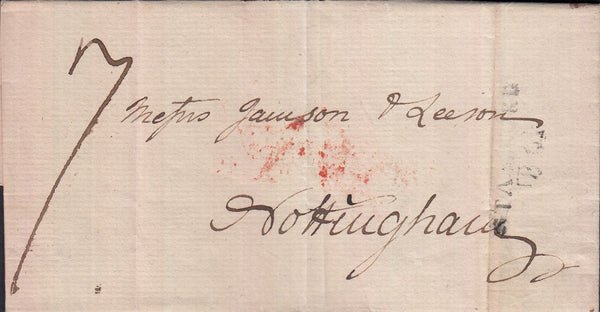 7
Messrs Jamson & Leeson
Nottingham